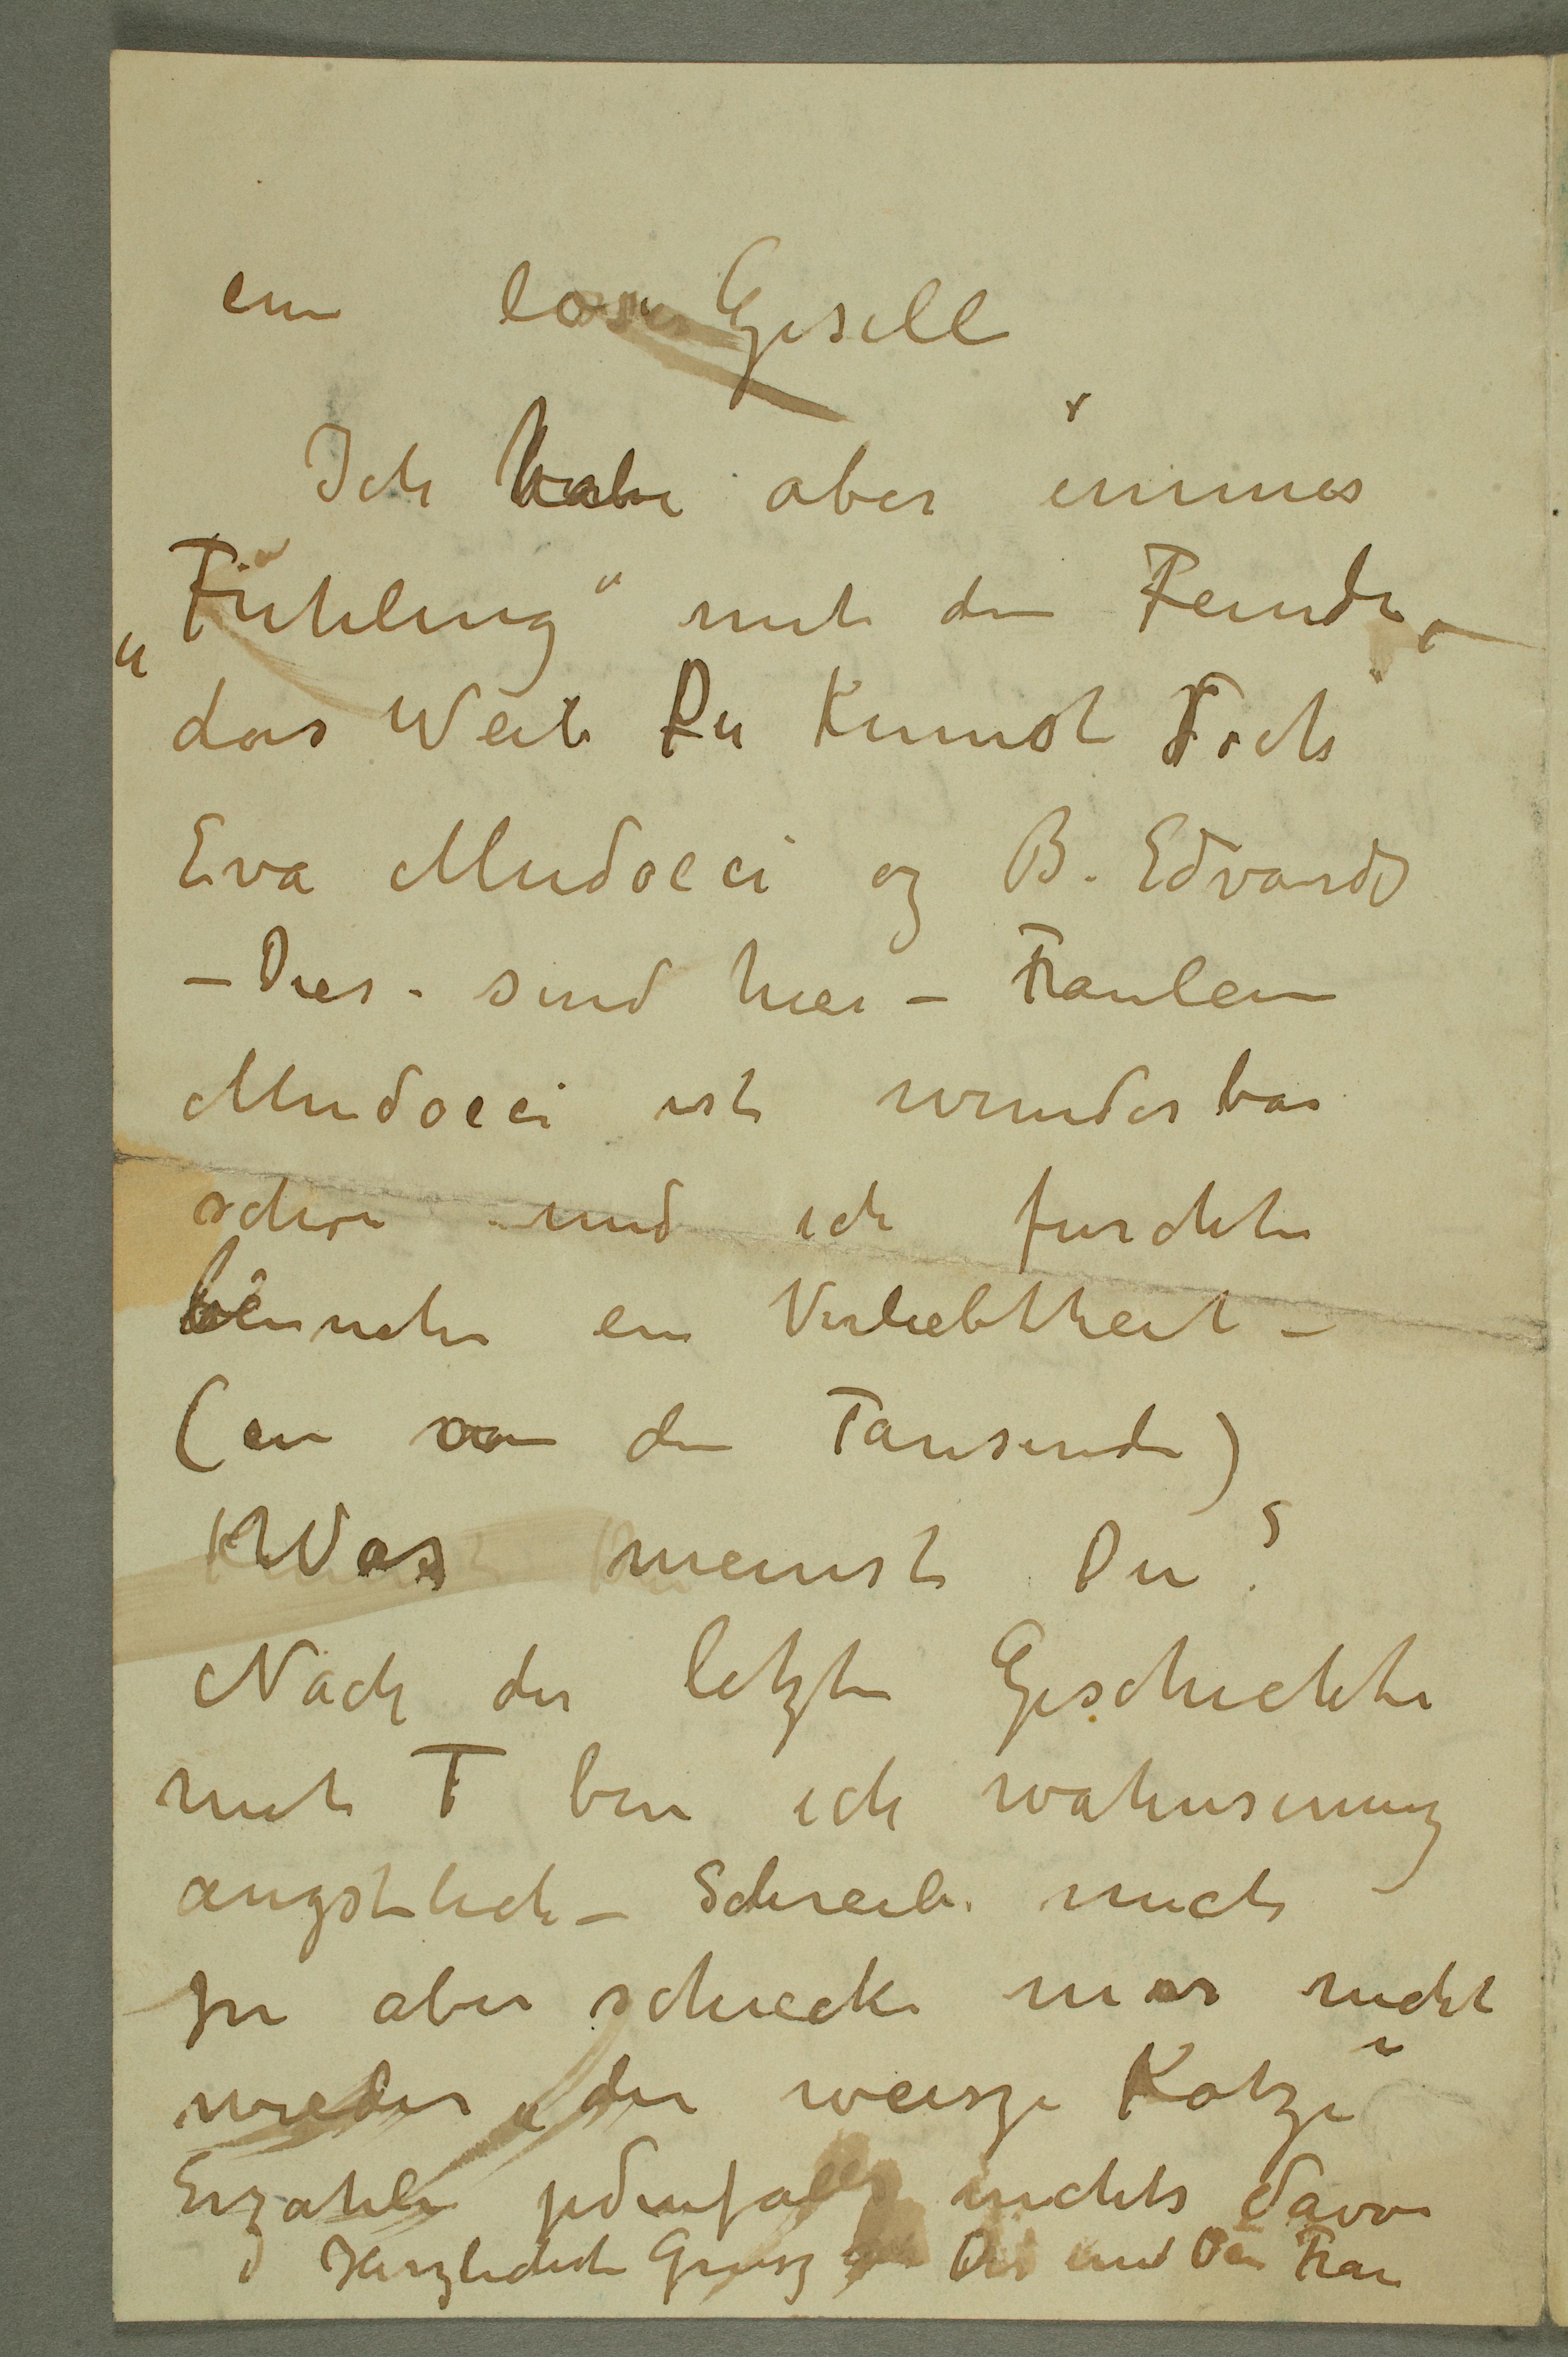 ein loser Gesell
Ich habe aber immer
„Fühling“ mit den Feinde,
das Weib Du kennst doch
Eva Mudocci og B. Edvards
– Dies. sind hier – Fraulein
Mudocci ist wunderbar
schön und ich furchte
beinnche ein Verliebtheit –
(ein von den Tausende)
Was meinst Du?
Nach der letzte Geschichte
mit T bin ich wahnsinnig
angstlich – Schreib mich
zu aber schrecke mir nicht
wieder „der weisze Katze“
Erzahle jedenfalls nichts davon
Herzlichste Grusz Dir und Dein Frau